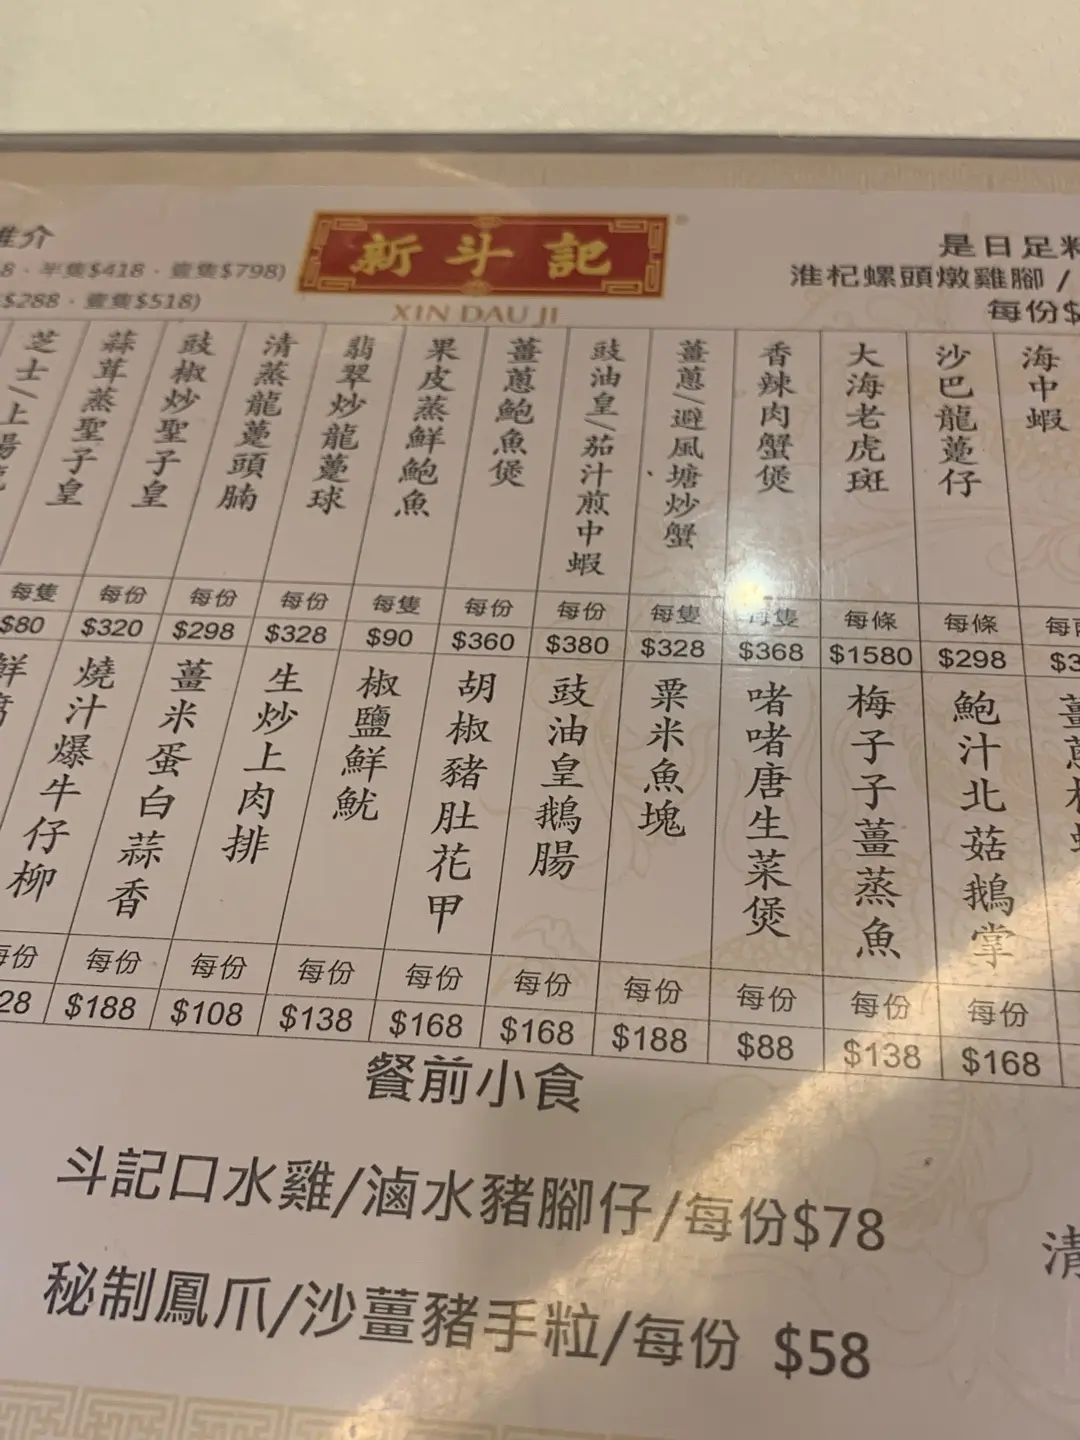 推介
8．半隻$418．壹隻$798)
$288．壹隻$518)
新斗記
XIN DAU JI
是日足料
淮杞螺頭燉雞腳 /
每份$
海中蝦
沙巴龍躉仔 每條 $298
大海老虎斑 每條 $1580
香辣肉蟹煲 每隻 $368
薑蔥/避風塘炒蟹 每隻 $328
豉油皇/茄汁煎中蝦 每份 $380
薑蔥鮑魚煲 每份 $360
果皮蒸鮮鮑魚 每隻 $90
翡翠炒龍躉球 每份 $328
清蒸龍躉頭腩 每份 $298
豉椒炒聖子皇 每份 $320
蒜茸蒸聖子皇 每隻 $80
芝士/上湯
鮑汁北菇鵝掌 每份 $168
梅子子薑蒸魚 每份 $138
啫啫唐生菜煲 每份 $88
粟米魚塊 每份 $188
豉油皇鵝腸 每份 $168
胡椒豬肚花甲 每份 $168
椒鹽鮮魷 每份 $138
生炒上肉排 每份 $108
薑米蛋白蒜香 每份 $188
燒汁爆牛仔柳 每份 28
餐前小食
斗記口水雞/滷水豬腳仔/每份$78
秘制鳳爪/沙薑豬手粒/每份 $58
清